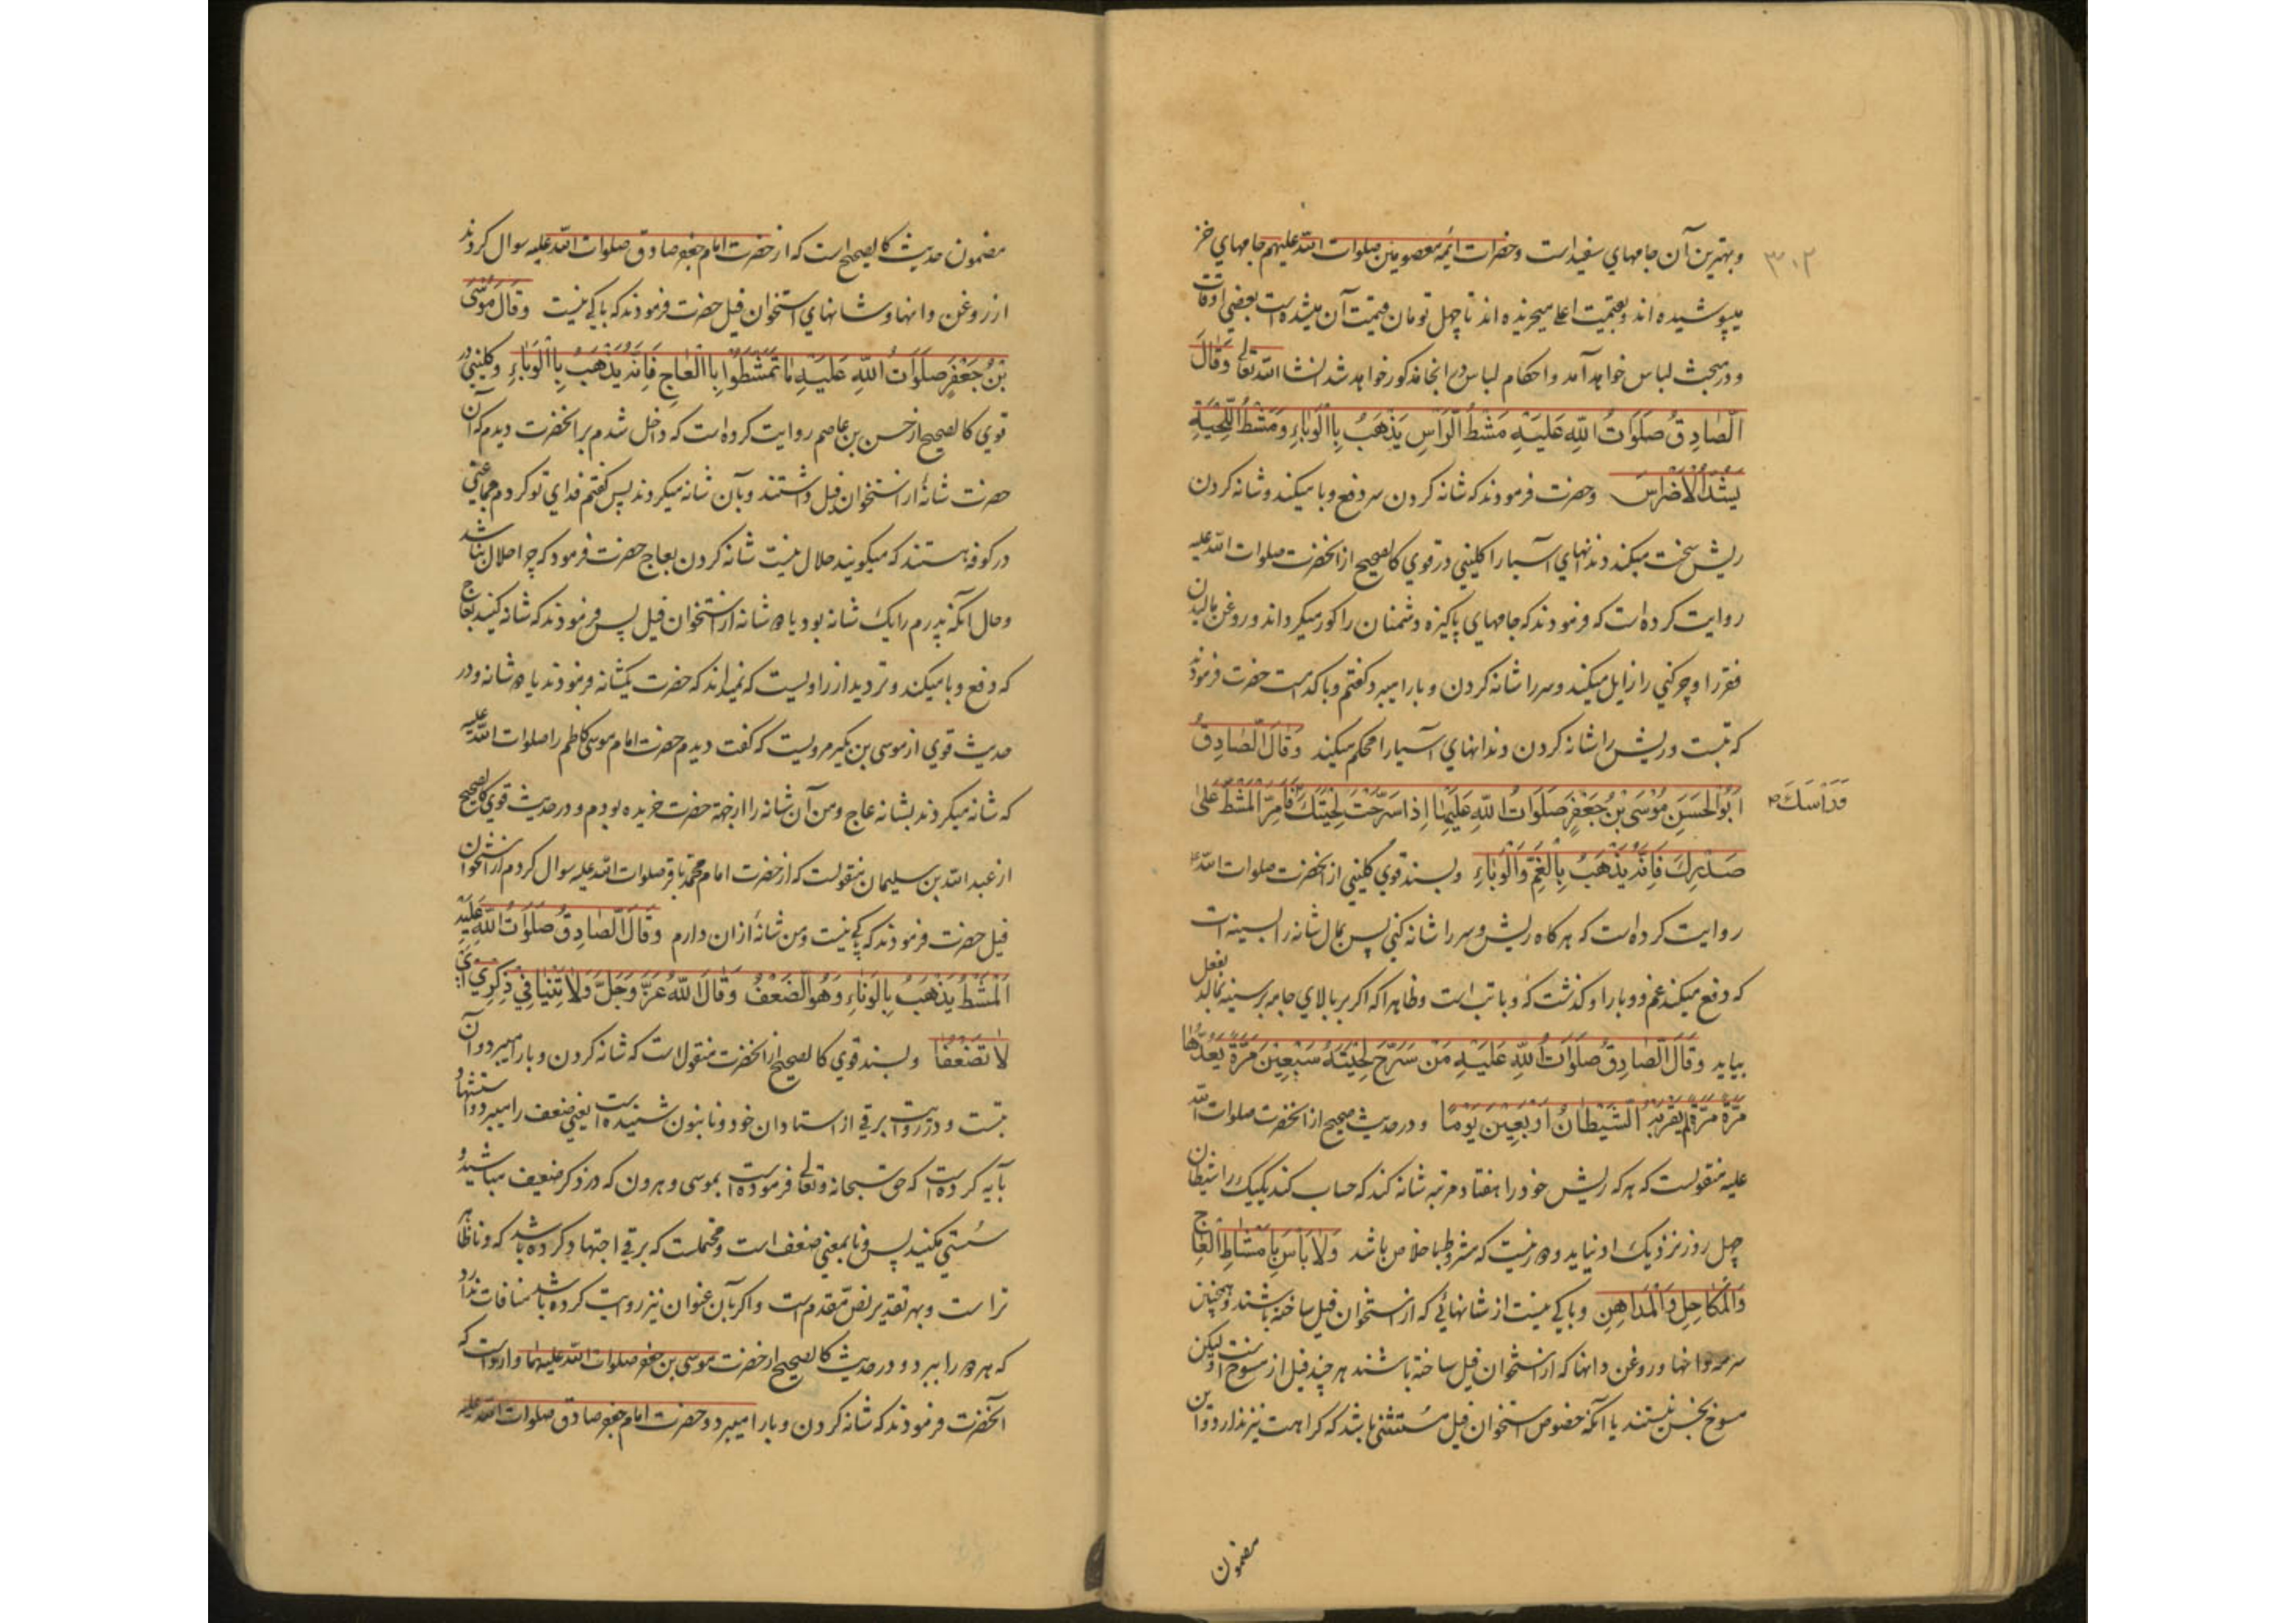 ۳۰۲
و بهترین آن جامهای سفید است و حضرات ائمه معصومین صلوات الله علیهم جامهای خز
میپوشیده اند و بقیمت اعلی میخریده اند تا چهل تومان قیمت آن میشده است بعضی اوقات
و در مبحث لباس خواهد آمد و احکام لباس در انجا مذکور خواهد شد انشاالله تعالی وَقَالَ
الصَّادِقُ صَلَوَاتُ اللهِ عَلَيْهِ مَشْطُ الرَّاسِ يَذْهَبُ بِالْوَبَاءِ وَمَشْطُ اللِّحْيَةِ
يَشُدُّ الْاَضْرَاسَ و حضرت فرمودند که شانه کردن سر دفع وبا میکند و شانه کردن
ریش سخت میکند دندانهای آسیا را کلینی در قوی کالصحیح از انحضرت صلوات الله علیه
روایت کرده است که فرمودند که جامهای پاکیزه دشمنان را کور میکرداند و روغن مالیدن
فقر را و چرکنی را زایل میکند و سر را شانه کردن وبا را میبرد کفتم وبا کدامست حضرت فرمودند
که تبست و ریش را شانه کردن دندانهای آسیا را محکم میکند وَقَالَ الصَّادِقُ
اَبُو الْحَسَنِ مُوْسَى بْنُ جَعْفَرٍ صَلَوَاتُ اللهِ عَلَيْهِمَا اِذَا سَرَّحْتَ لِحْيَتَكَ فَاَمِرَّ الْمَشْطَ عَلَى
وَرَاْسَكَ
صَدْرِكَ فَاِنَّهُ يَذْهَبُ بِالْغَمِّ وَالْوَبَاءِ و بسند قوی کلینی از انحضرت صلوات الله
روایت کرده است که هر کاه ریش و سر را شانه کنی پس بمال شانه را بسینه ات
که دفع میکند غم و وبا را و کذشت که وبا تب است و ظاهرا که اکر بر بالای جامه بر سینه بمالد بفعل
بیاید وَقَالَ الصَّادِقُ صَلَوَاتُ اللهِ عَلَيْهِ مَنْ سَرَّحَ لِحْيَتَهُ سَبْعِيْنَ مَرَّةً يَعُدُّهَا
مَرَّةً مَرَّةً لَمْ يَقْرَبْهُ الشَّيْطَانُ اَرْبَعِيْنَ يَوْمًا و در حدیث صحیح از انحضرت صلوات الله
علیه منقولست که هر که ریش خود را هفتاد مرتبه شانه کند که حساب کند یکیک را شیطان
چهل روز نزدیک او نیاید و دور نیست که مشروط باخلاص باشد وَلَا بَاْسَ بِاَمْشَاطِ الْعَاجِ
وَالْمَكَاحِلِ وَالْمَدَاهِنِ و باکی نیست از شانهائی که از استخوان فیل ساخته باشند و همچنین
سرمه دانها و روغن دانها که از استخوان فیل ساخته باشند هر چند فیل از مسوخ است لیکن
مسوخ نجس نیستند یا آنکه خصوص استخوان فیل مستثنی باشد که کراهت نیز ندارد و این
مضمون
مضمون حدیث کالصحیح است که از حضرت امام جعفر صادق صلوات الله علیه سوال کردند
از روغن دانها و شانهای استخوان فیل حضرت فرمودند که باکی نیست وَقَالَ مُوْسَى
بْنُ جَعْفَرٍ صَلَوَاتُ اللهِ عَلَيْهِ مَا تَمَشَّطُوْا بِالْعَاجِ فَاِنَّهُ يَذْهَبُ بِالْوَبَاءِ و کلینی در
قوی کالصحیح از حسن بن عاصم روایت کرده است که داخل شدم بر انحضرت دیدم که آن
حضرت شانهٔ از استخوان فیل داشتند و بآن شانه میکردند پس کفتم فدای تو کردم جماعتی
در کوفه هستند که میکویند حلال نیست شانه کردن بعاج حضرت فرمود که چرا حلال نباشد
و حال انکه پدرم را یک شانه بود یا دو شانه از استخوان فیل پس فرمودند که شانه کنید بعاج
که دفع وبا میکند و تردید از راویست که نمیداند که حضرت یکشانه فرمودند یا دو شانه و در
حدیث قوی از موسی بن بکیر مرویست که کفت دیدم حضرت امام موسی کاظم را صلوات الله علیه
که شانه میکردند بشانه عاج و من آن شانه را از جهة حضرت خریده بودم و در حدیث قوی کالصحیح
از عبد الله بن سلیمان منقولست که از حضرت امام محمد باقر صلوات الله علیه سوال کردم از استخوان
فیل حضرت فرمودند که باکی نیست و من شانهٔ از ان دارم وَقَالَ الصَّادِقُ صَلَوَاتُ اللهِ عَلَيْهِ
اَلْمَشْطُ يَذْهَبُ بِالْوَنَاءِ وَهُوَ الضَّعْفُ وَقَالَ اللهُ عَزَّ وَجَلَّ وَلَا تَنِيَا فِيْ ذِكْرِيْ اَيْ
لَا تَضْعُفَا و بسند قوی کالصحیح از انحضرت منقول است که شانه کردن وبا را میبرد و آن
تبست و در روایت برقی از استادان خود ونا بنون شنیده است یعنی ضعف را میبرد و استشهاد
بآیه کرده است که حق سبحانه و تعالی فرموده است بموسی و هرون که در ذکر ضعیف مباشید و
سستی مکنید پس ونا بمعنی ضعف است و محتملست که برقی اجتهاد کرده باشد که ونا ظاهر
تر است و بهر تقدیر نص مقدم است و اکر بآن عنوان نیز روایت کرده باشد منافات ندارد
که هر دو را ببرد و در حدیث کالصحیح از حضرت موسی بن جعفر صلوات الله علیهما وارد است که
انحضرت فرمودند که شانه کردن وبا را میبرد و حضرت امام جعفر صادق صلوات الله علیه